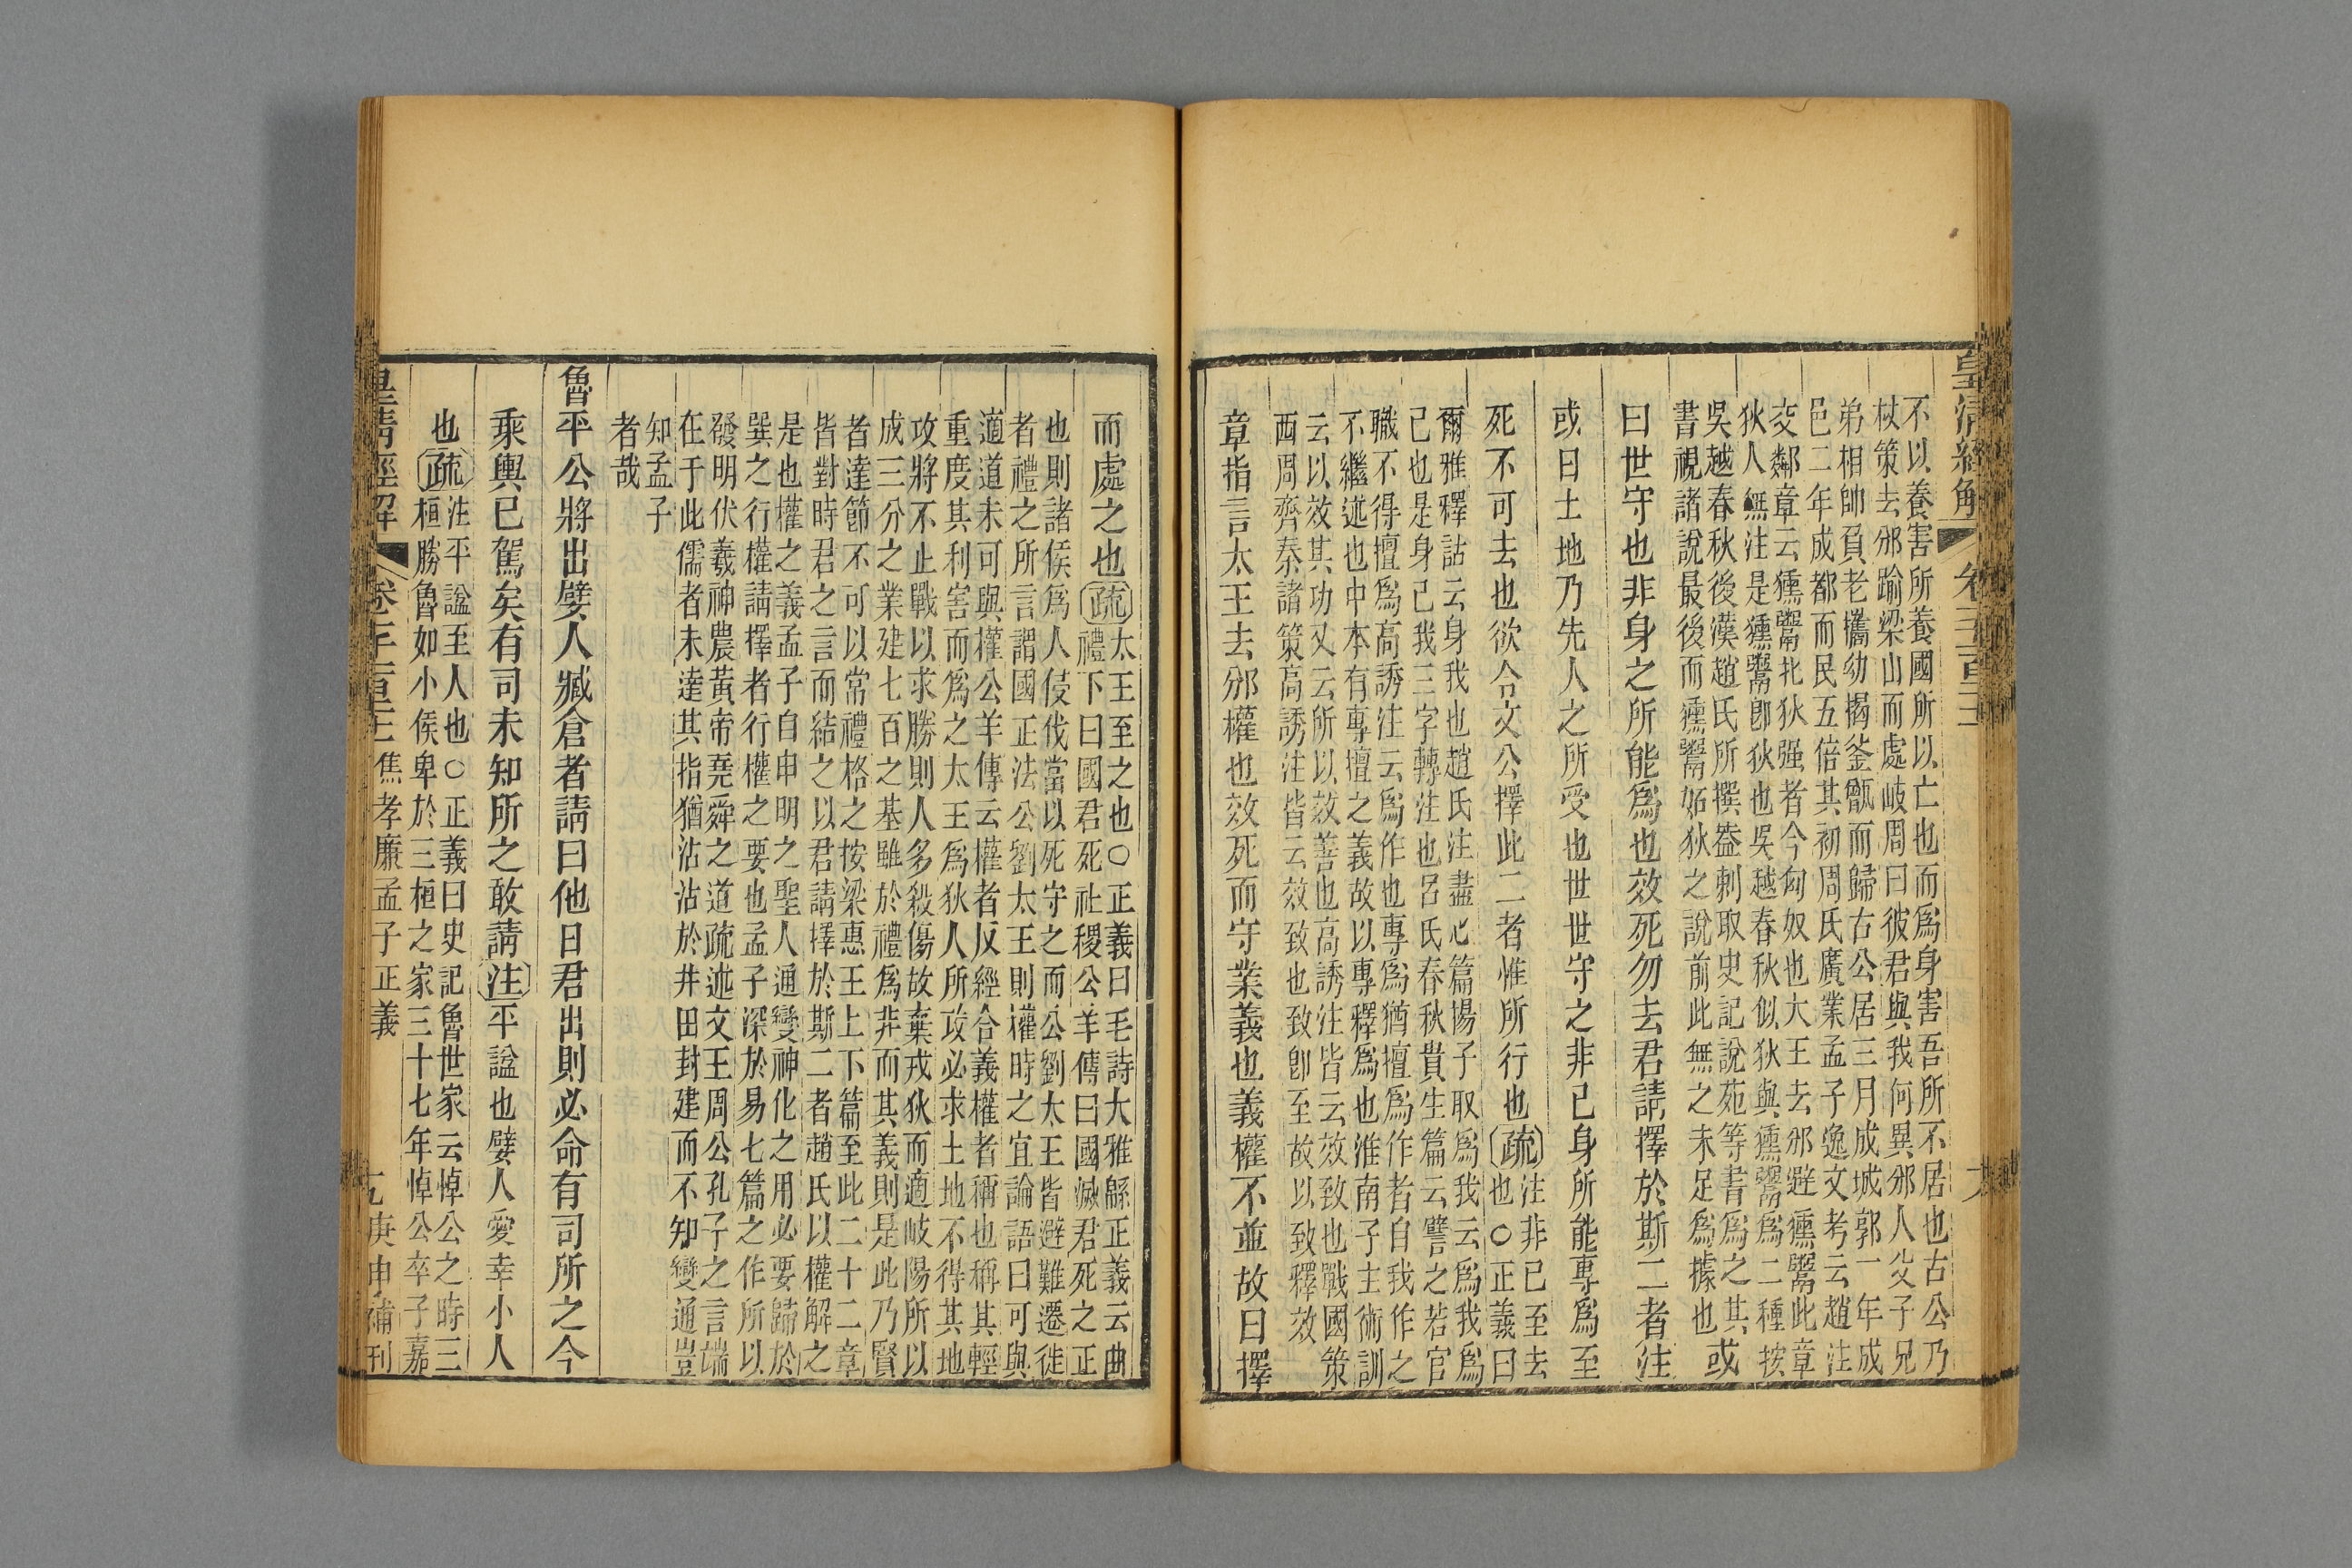 皇清經解
卷千一百二十一
不以養害所養國所以亡也而爲身害吾所不居也古公乃
杖策去邠踰梁山而處岐周曰彼君與我何異邠人父子兄
弟相帥負老攜幼揭釜甑而歸古公居三月成城郭一年成
邑二年成都而民五倍其初周氏廣業孟子逸文考云趙注
交鄰章云獯鬻北狄强者今匈奴也大王去邠避獯鬻此章
狄人無注是獯鬻卽狄也吳越春秋似狄與獯鬻爲二種按
吳越春秋後漢趙氏所撰蓋刺取史記說苑等書爲之其或
書視諸說最後而獯鬻姤狄之說前此無之未足爲據也
曰世守也非身之所能爲也效死勿去君請擇於斯二者注
或曰土地乃先人之所受也世世守之非已身所能專爲至
死不可去也欲令文公擇此二者惟所行也疏注非已至去
也○正義曰
爾雅釋詁云身我也趙氏注盡心篇揚子取爲我云爲我爲
己也是身己我三字轉注也呂氏春秋貴生篇云譬之若官
職不得擅爲高誘注云爲作也專爲猶擅爲作者自我作之
不繼述也中本有專擅之義故以專釋爲也淮南子主術訓
云以效其功又云所以效善也高誘注皆云效致也戰國策
西周齊秦諸策高誘注皆云效致也致卽至故以致釋效
章指言太王去邠權也效死而守業義也義權不並故曰擇
而處之也疏太王至之也○正義曰毛詩大雅緜正義云曲
禮下曰國君死社稷公羊傳曰國滅君死之正
也則諸侯爲人侵伐當以死守之而公劉大王皆避難遷徙
者禮之所言謂國正法公劉太王則權時之宜論語曰可與
適道未可與權公羊傳云權者反經合義權者稱也稱其輕
重度其利害而爲之太王爲狄人所攻必求土地不得其地
攻將不止戰以求勝則人多殺傷故棄戎狄而適岐陽所以
成三分之業建七百之基雖於禮爲非而其義則是此乃賢
者達節不可以常禮格之按梁惠王上下篇至此二十二章
皆對時君之言而結之以君請擇於斯二者趙氏以權解之
是也權之義孟子自申明之聖人通變神化之用必要歸於
巽之行權請擇者行權之要也孟子深於易七篇之作所以
發明伏羲神農黃帝堯舜之道疏述文王周公孔子之言端
在于此儒者未達其指猶沾沾於井田封建而不知變通豈
知孟子
者哉
魯平公將出嬖人臧倉者請曰他日君出則必命有司所之今
乘輿已駕矣有司未知所之敢請注平諡也嬖人愛幸小人
也疏注平諡至人也○正義曰史記魯世家云悼公之時三
桓勝魯如小侯卑於三桓之家三十七年悼公卒子嘉
皇清經解
焦孝廉孟子正義
庚申補刊